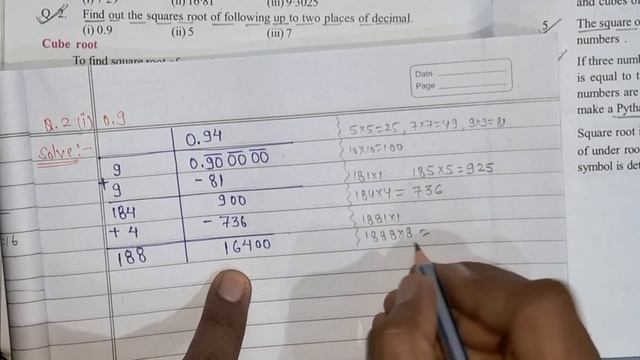 (i) 7 29 (ii) 16.81 (iii) 9.3025
Q. 2. Find out the squares root of following up to two places of decimal.
(i) 0.9 (ii) 5 (iii) 7
Cube root
To find square root of
5
and cubes of
The square o
numbers .
If three num
is equal to t
numbers are
make a Pytha
Square root
of under roo
symbol is det
Date
Page
Q.2 (i) 0.9
Solve:-
0.94
9 0.90 00 00
+ 9 - 81
184 900
+ 4 - 736
188 16400
5×5=25, 7×7=49, 9×9=81
10×10=100
181×1 185×5=925
184×4= 736
1881×1
1888×8=
-16